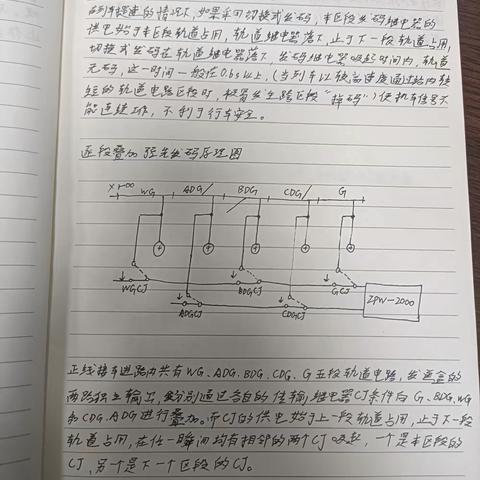 在列车提速的情况下,如果采用切换式发码,本区段发码继电器的
供电始于本区段轨道占用,轨道继电器落下,止于下一段轨道占用,
切换式发码在轨道继电器落下,发码继电器吸起时间内,轨道
无码,这一时间一般在0.6s以上,(当列车以较高速度通过站内较
短的轨道电路区段时,极易发生跨区段"掉码")使机车信号不
能连续工作,不利于行车安全。
逐段叠加预先发码原理图
X WG ADG BDG CDG G
WGCJ BDGCJ GCJ
ADGCJ CDGCJ
ZPW-2000
正线接车进路内共有WG、ADG、BDG、CDG、G五段轨道电路,发送盒的
两路独立输出,分别通过各自的传输继电器CJ条件向G、BDG、WG
和CDG、ADG进行叠加。而CJ的供电始于上一段轨道占用,止于下一段
轨道占用,在任一瞬间均有相邻的两个CJ吸起,一个是本区段的
CJ,另个是下一个区段的CJ。